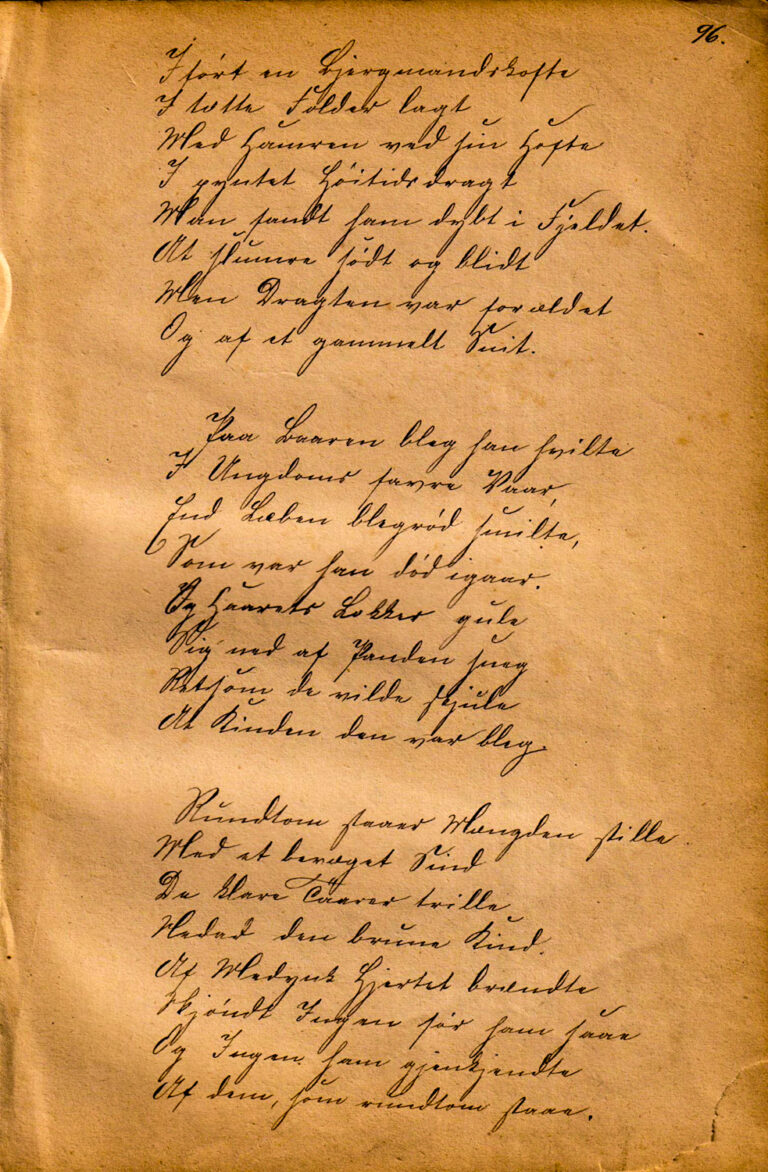 96.
Iført en Bjergmandskofte
I tætte Folder lagt
Med Hamren ved sin Hofte
I pyntet Høitidsdragt
Man fandt ham dybt i Fjeldet.
At slumre sødt og blidt
Men Dragten var forældet
Og af et gammelt Snit.
Paa Baaren bleg han hvilte
I Ungdoms favre Vaar,
End Læben blegrød smilte,
Som var han død igaar.
Og Haarets Lokker gule
Sig ned af Panden sneg
Retsom de vilde skjule
At Kinden den var bleg.
Rundtom staaer Mængden stille.
Med et bevæget Sind
De klare Taarer trille
Nedad den brune Kind.
Af Medynk Hjertet brændte
Skjøndt Ingen før ham saae
Og Ingen ham gjenkjendte
Af dem, som rundtom staae.